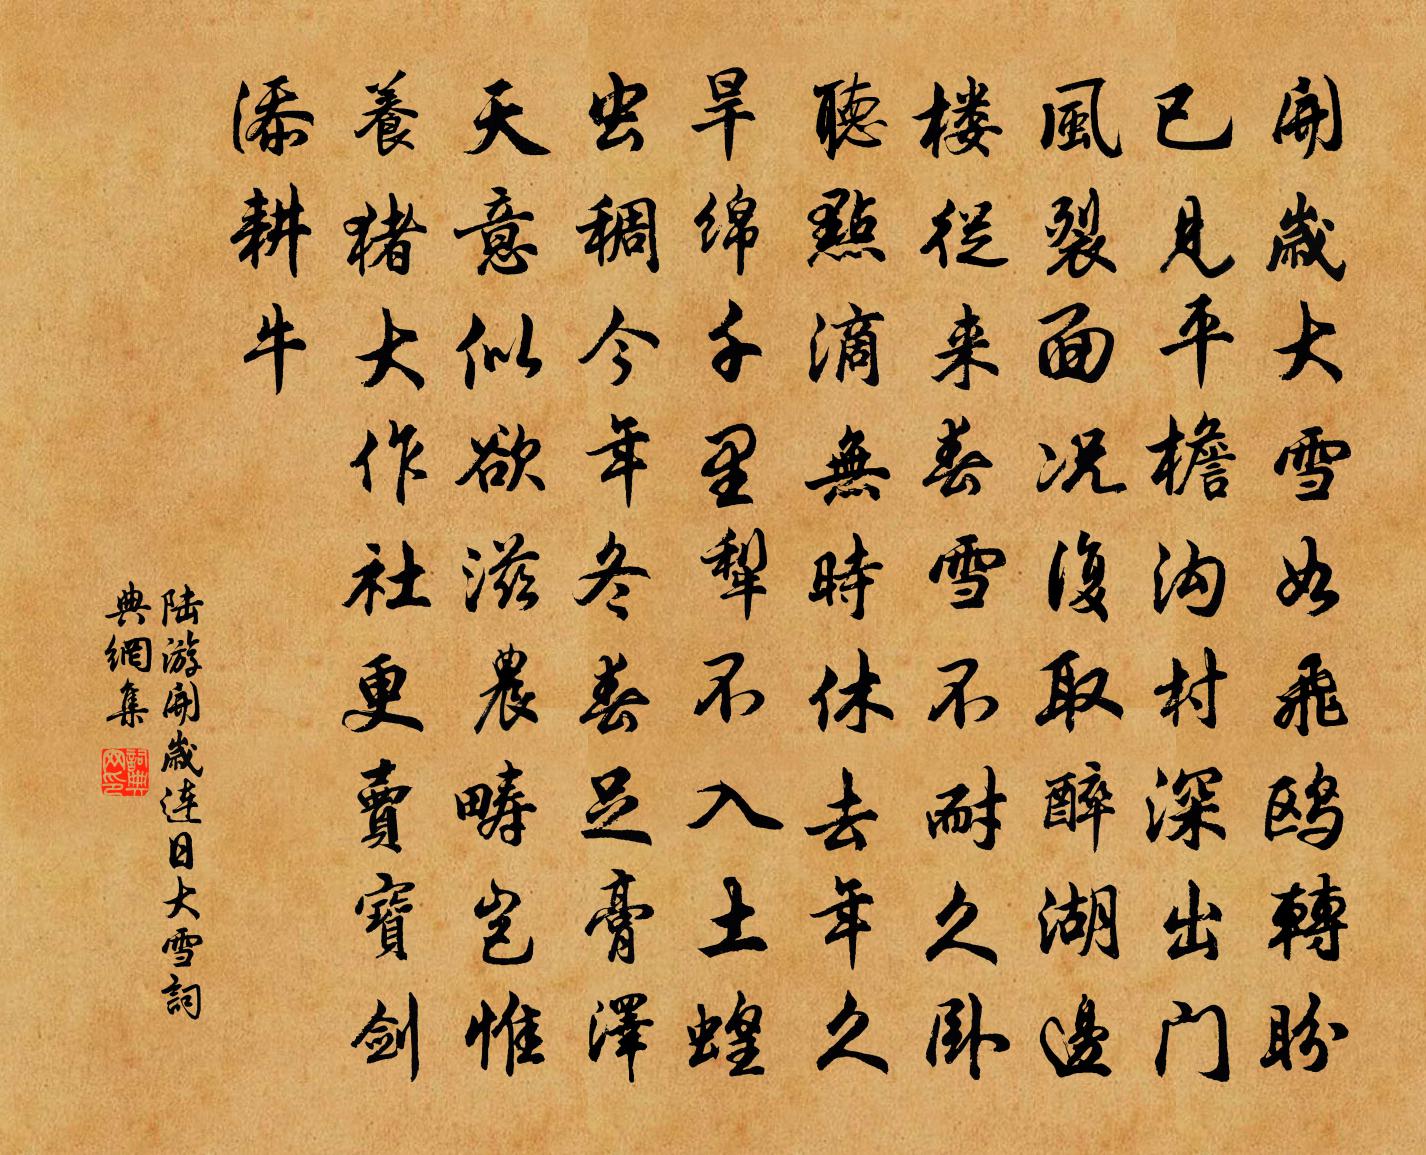 開歲大雪如飛鷗轉盼
已見平檐沟村深出门
風裂面况復取醉湖邊
楼從来春雪不耐久卧
聽點滴無時休去年久
旱綿千里犁不入土蝗
虫稠今年冬春足膏澤
天意似欲滋農疇豈惟
養猪大作社更賣寶剑
添耕牛
陆游開歲连日大雪詞
典網集
詞典网印